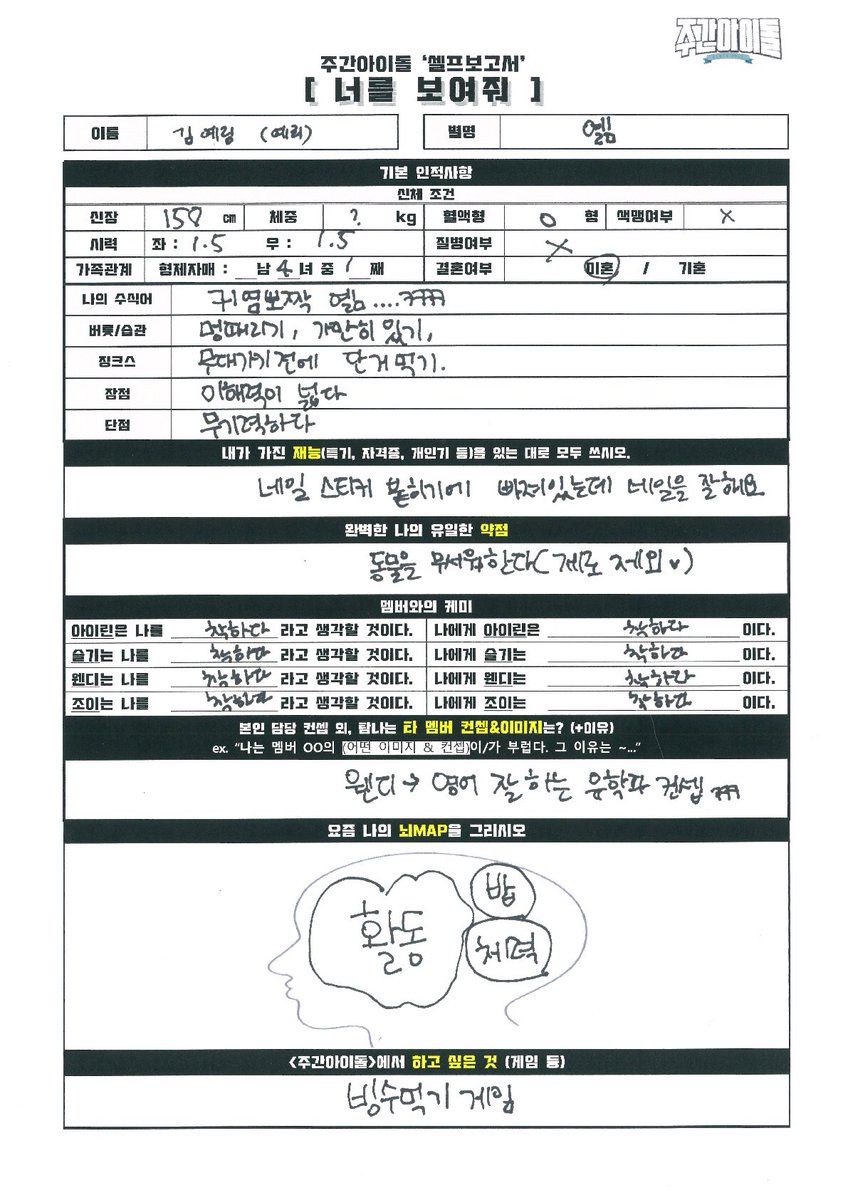 주간아이돌
주간아이돌 '셀프보고서'
[ 너를 보여줘 ]
이름 김예림 (예리) 별명 옐림
기본 인적사항
신체 조건
신장 158 cm 체중 ? kg 혈액형 O 형 색맹여부 X
시력 좌 : 1.5 우 : 1.5 질병여부 X
가족관계 형제자매 : __남 4 녀 중 1 째 결혼여부 미혼 / 기혼
나의 수식어 귀염뽀짝 옐림....ㅋㅋㅋㅋ
버릇/습관 멍때리기, 가만히 있기,
징크스 무대가기 전에 단거 먹기.
장점 이해력이 넓다
단점 무기력하다
내가 가진 재능(특기, 자격증, 개인기 등)을 있는 대로 모두 쓰시오.
네일 스티커 붙히기에 빠져있는데 네일을 잘해요
완벽한 나의 유일한 약점
동물을 무서워한다(게로 제외♥)
멤버와의 케미
아이린은 나를 착하다 라고 생각할 것이다. 나에게 아이린은 착하다 이다.
슬기는 나를 착하다 라고 생각할 것이다. 나에게 슬기는 착하다 이다.
웬디는 나를 착하다 라고 생각할 것이다. 나에게 웬디는 착하다 이다.
조이는 나를 착하다 라고 생각할 것이다. 나에게 조이는 착하다 이다.
본인 담당 컨셉 외, 탐나는 타 멤버 컨셉&이미지는? (+이유)
ex. "나는 멤버 OO의 (어떤 이미지 & 컨셉)이/가 부럽다. 그 이유는 ~..."
웬디 → 영어 잘 하는 유학파 컨셉 ㅋㅋㅋ
요즘 나의 뇌MAP을 그리시오
밥
활동
체력
<주간아이돌>에서 하고 싶은 것 (게임 등)
빙수먹기 게임